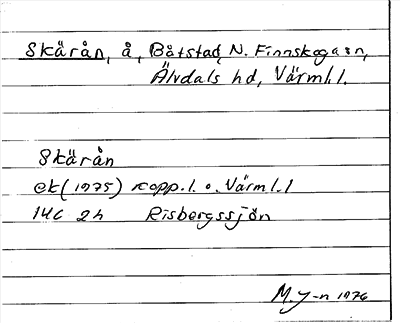 Skärån, å, Båtstad, N. Finnskogasn,
Älvdals hd, Värml.l.
Skärån
ek (1975) Kopp.l. o. Värml.l
14C 2h Risbergssjön
M.J-n 1976